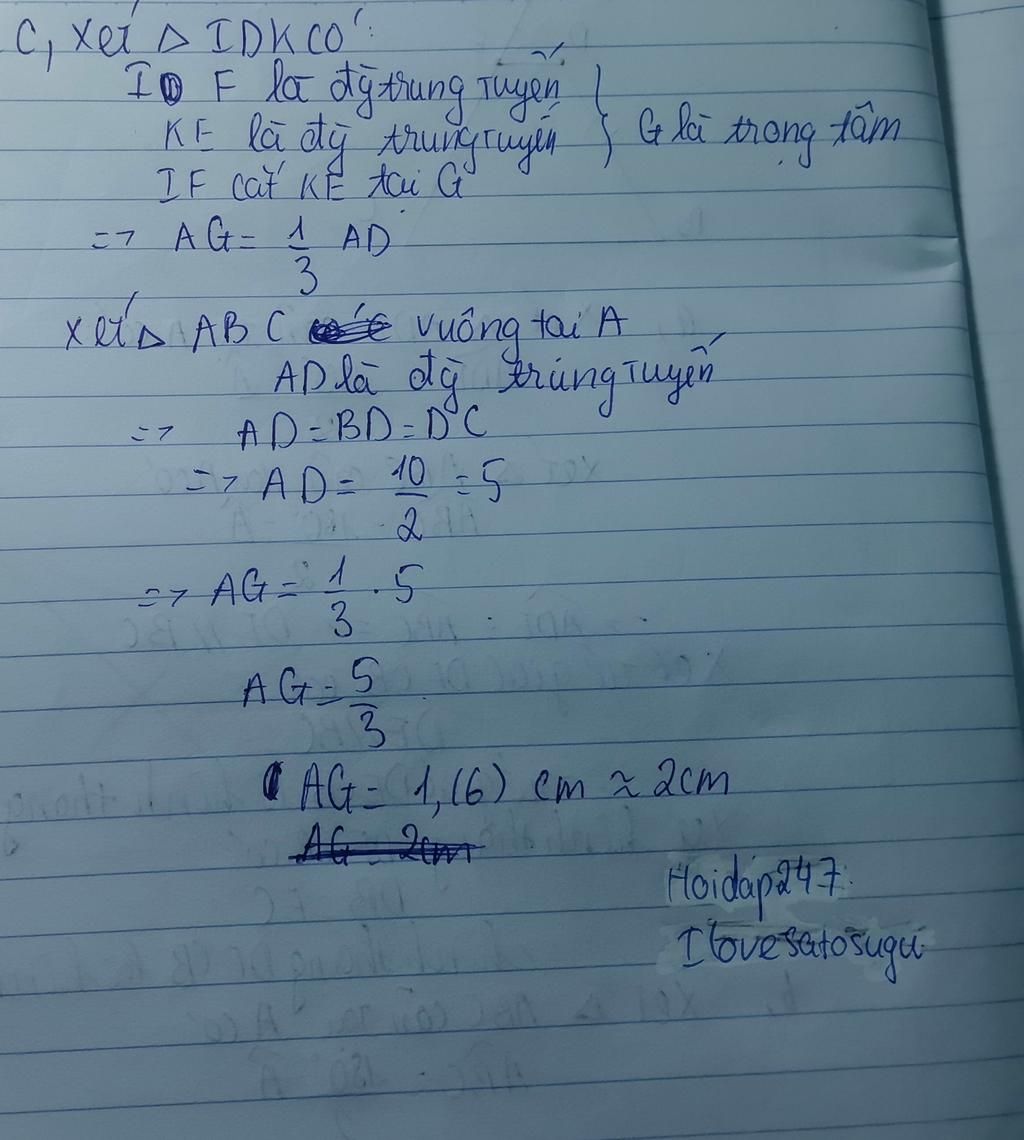 C, Xét △ IDK có:
IF là đg trung tuyến
KE là đg trung tuyến } G là trọng tâm
IF cắt KE tại G
=> AG = 1/3 AD
Xét △ ABC vuông tại A
AD là đg trung tuyến
=> AD = BD = DC
=> AD = 10/2 = 5
=> AG = 1/3 . 5
AG = 5/3
AG = 1,(6) cm ≈ 2cm
AG = 2cm
Hoidap247
Ilovesatosugu